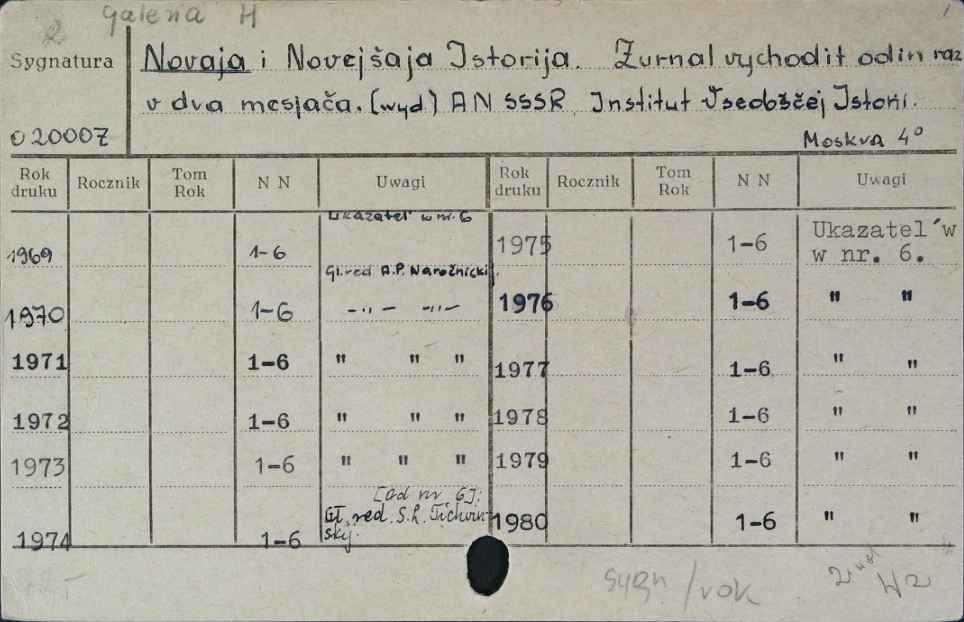 Galeria H
Sygnatura
Novaja i Novejšaja Istorija. Žurnal vychodit odin raz
v dva mesjača. (wyd) AN SSSR Institut Vseobščej Istorii.
O 2000Z
Moskva 4°
Rok druku Rocznik Tom Rok N N Uwagi Rok druku Rocznik Tom Rok N N Uwagi
1969 1-6 Ukazatel' w nr. 6 Gł. red A.P. Narožnickij. 1975 1-6 Ukazatel´w w nr. 6.
1970 1-6 -"- -"- 1976 1-6 " "
1971 1-6 " " " 1977 1-6 " "
1972 1-6 " " " 1978 1-6 " "
1973 1-6 " " " 1979 1-6 " "
1974 1-6 [Od nr 6]: Gł. red. S.L. Tichvinskij. 1980 1-6 " "
sygn/rok